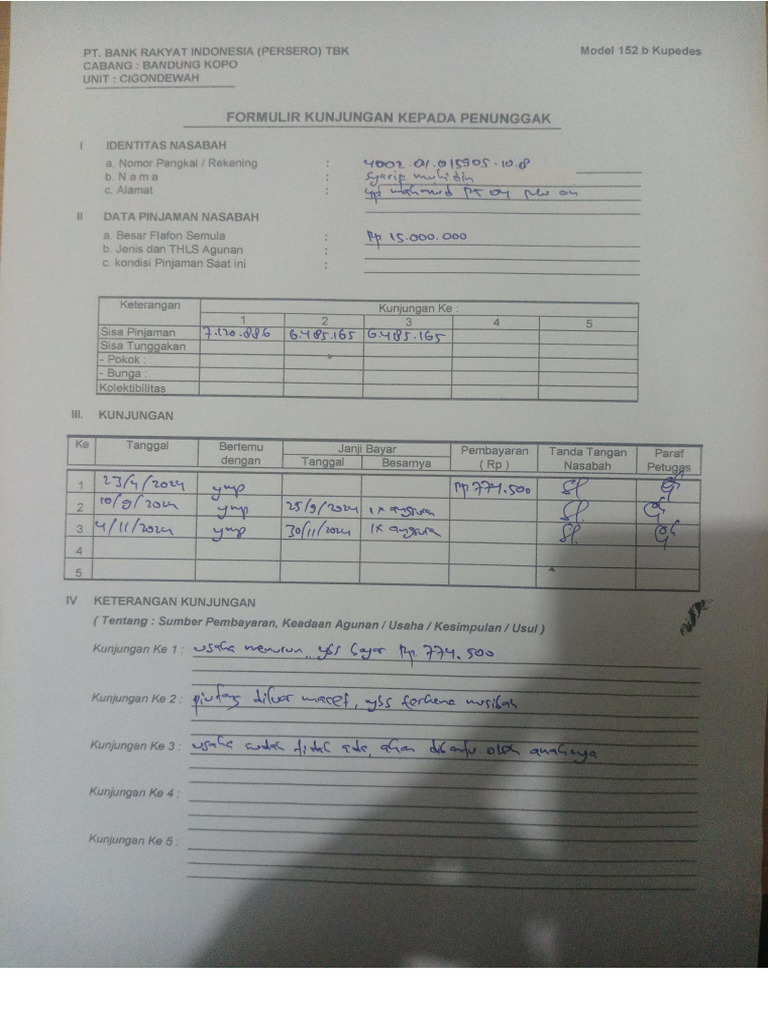 PT. BANK RAKYAT INDONESIA (PERSERO) TBK Model 152 b Kupedes
CABANG : BANDUNG KOPO
UNIT : CIGONDEWAH
FORMULIR KUNJUNGAN KEPADA PENUNGGAK
I IDENTITAS NASABAH
a. Nomor Pangkal / Rekening : 4002.01.015905.10.8
b. N a m a : Syarip muhidin
c. Alamat : kp mahmud RT 04 RW 04
II DATA PINJAMAN NASABAH
a. Besar Flafon Semula : Rp 15.000.000
b. Jenis dan THLS Agunan :
c. kondisi Pinjaman Saat ini :
Keterangan Kunjungan Ke :
1 2 3 4 5
Sisa Pinjaman 7.120.886 6.485.165 6.485.165
Sisa Tunggakan
- Pokok :
- Bunga :
Kolektibilitas
III. KUNJUNGAN
Ke Tanggal Bertemu dengan Janji Bayar Pembayaran ( Rp ) Tanda Tangan Nasabah Paraf Petugas
Tanggal Besarnya
1 23/4/2024 ymp Rp 774.500
2 10/9/2024 ymp 25/9/2024 1x angsuran
3 4/11/2024 ymp 30/11/2024 1x angsuran
4
5
IV KETERANGAN KUNJUNGAN
( Tentang : Sumber Pembayaran, Keadaan Agunan / Usaha / Kesimpulan / Usul )
Kunjungan Ke 1 : usaha menurun, ybs bayar Rp. 774.500
Kunjungan Ke 2 : piutang diluar macet, ybs terkena musibah
Kunjungan Ke 3 : usaha sudah tidak ada, akan dibantu oleh anaknya
Kunjungan Ke 4 :
Kunjungan Ke 5 :